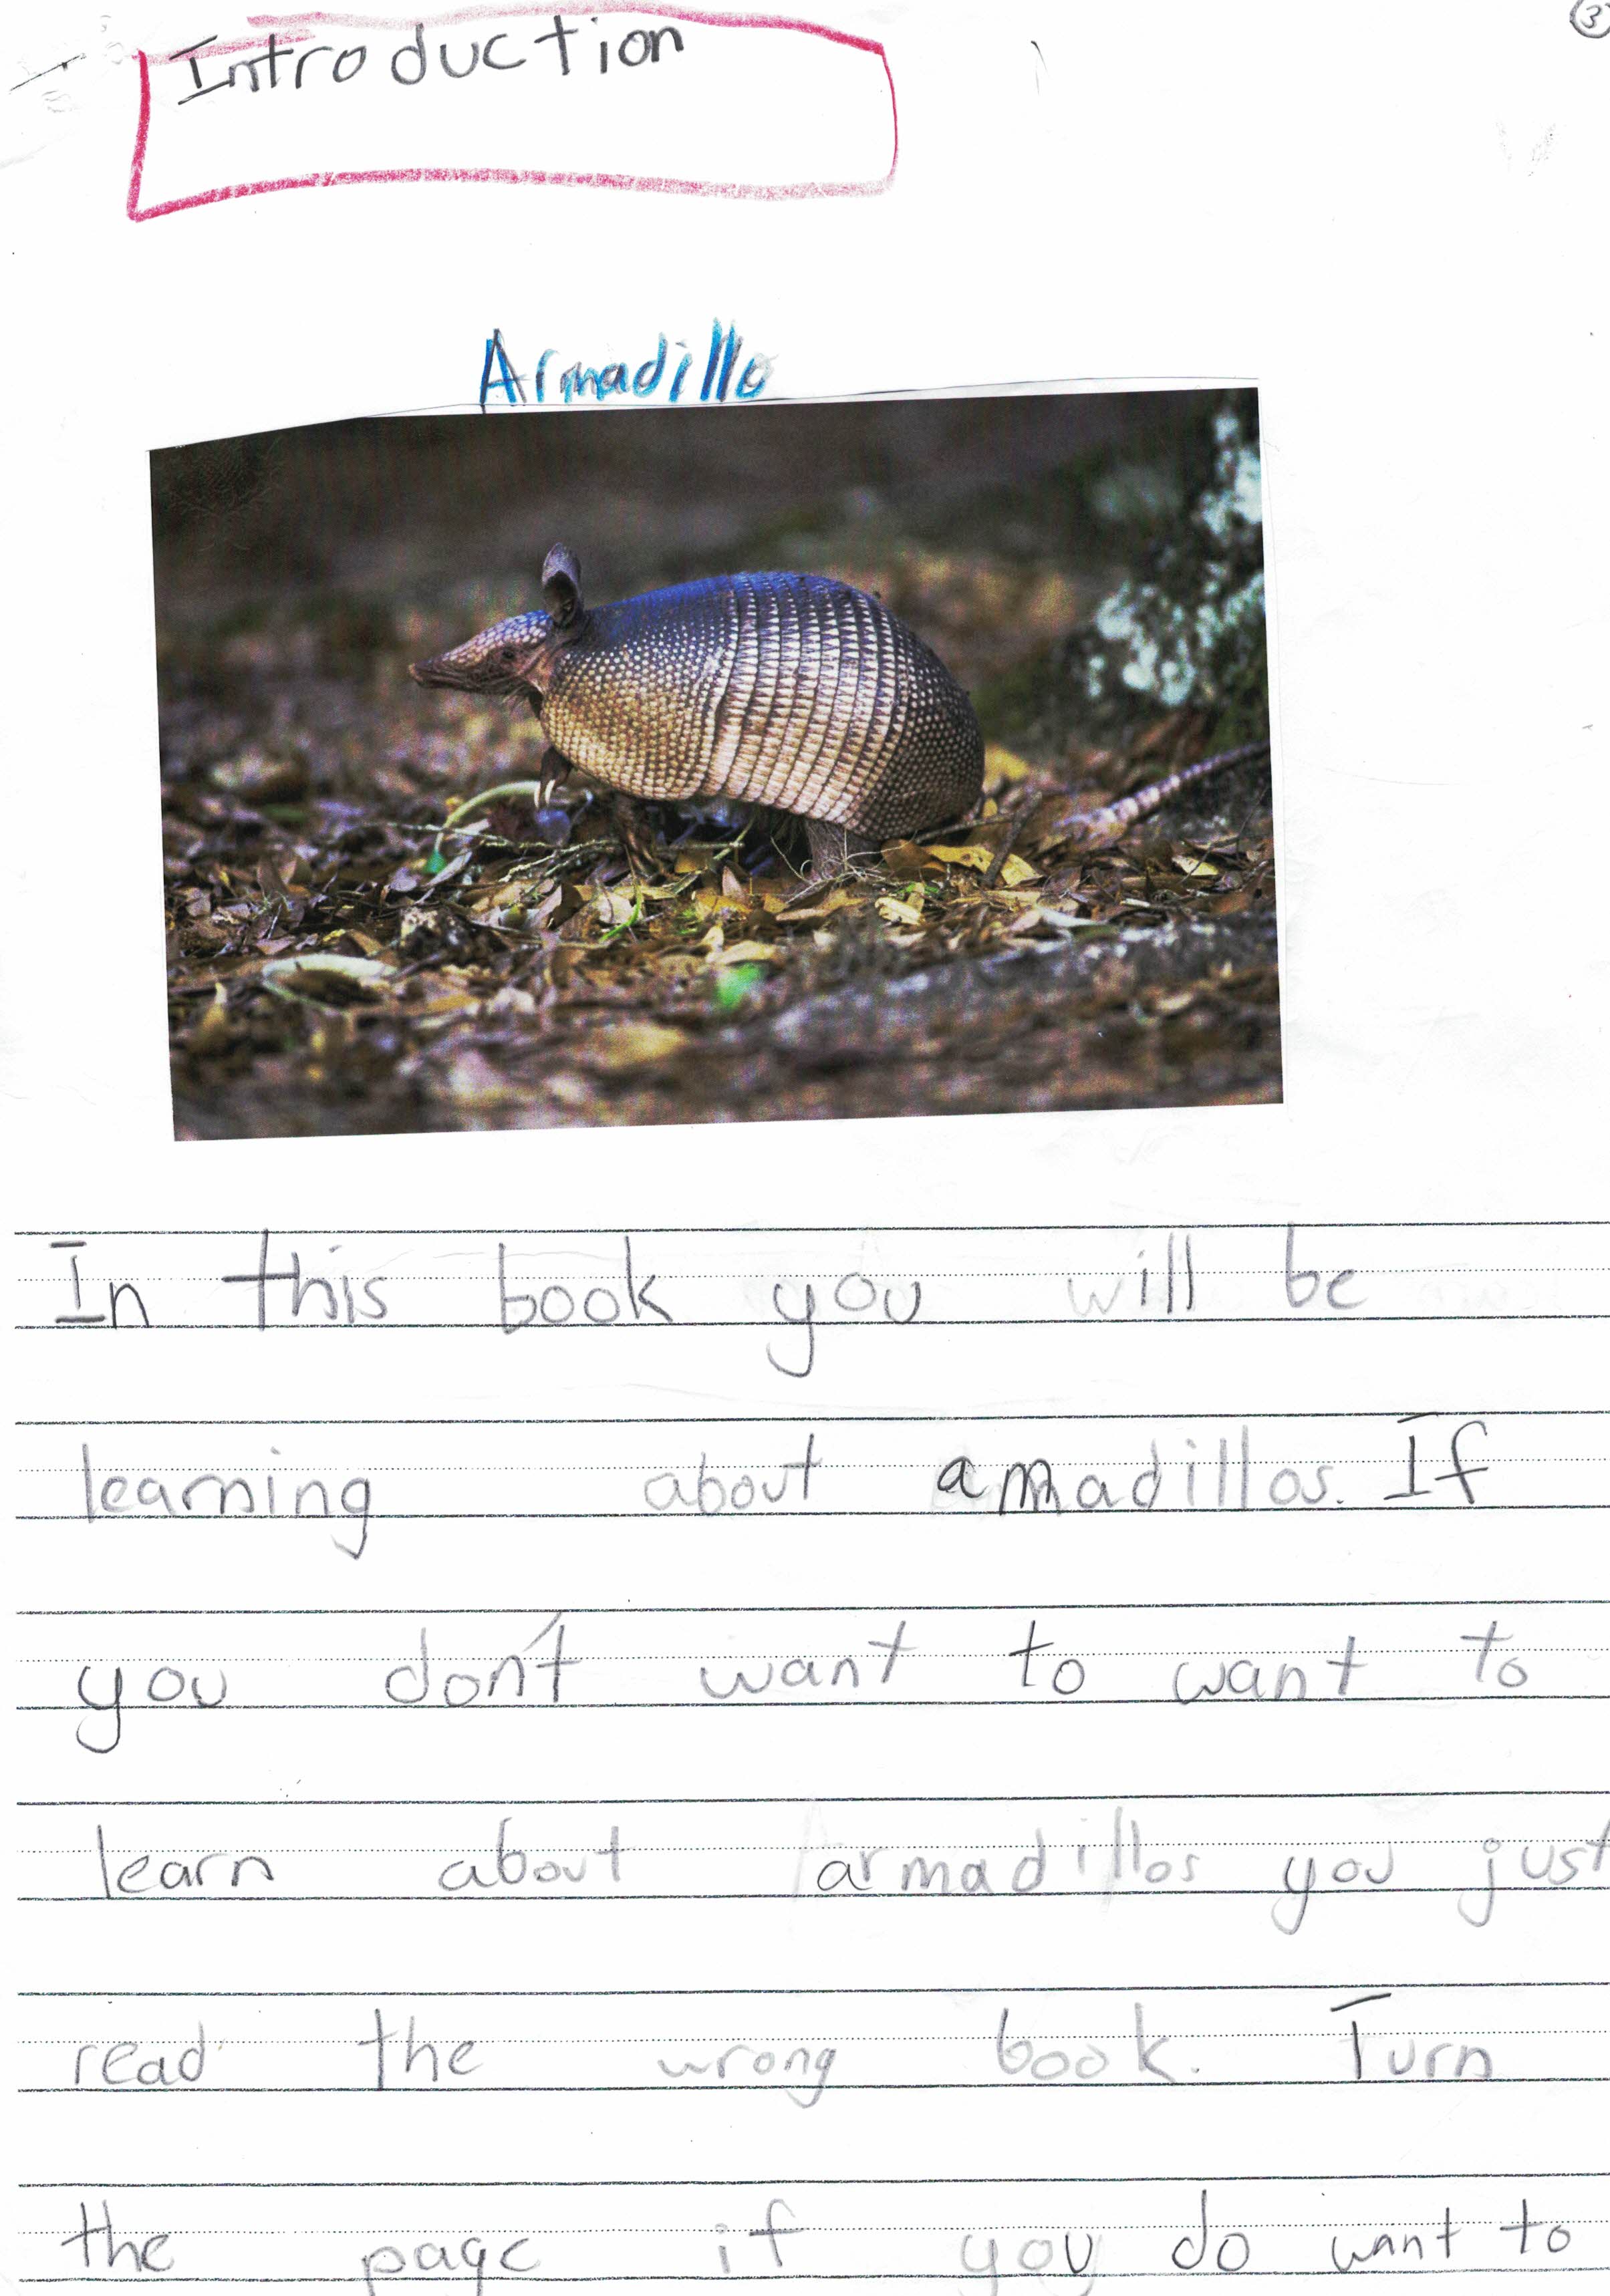 3
Introduction
Armadillo
In this book you will be
learning about armadillos. If
you don't want to want to
learn about armadillos you just
read the wrong book. Turn
the page if you do want to